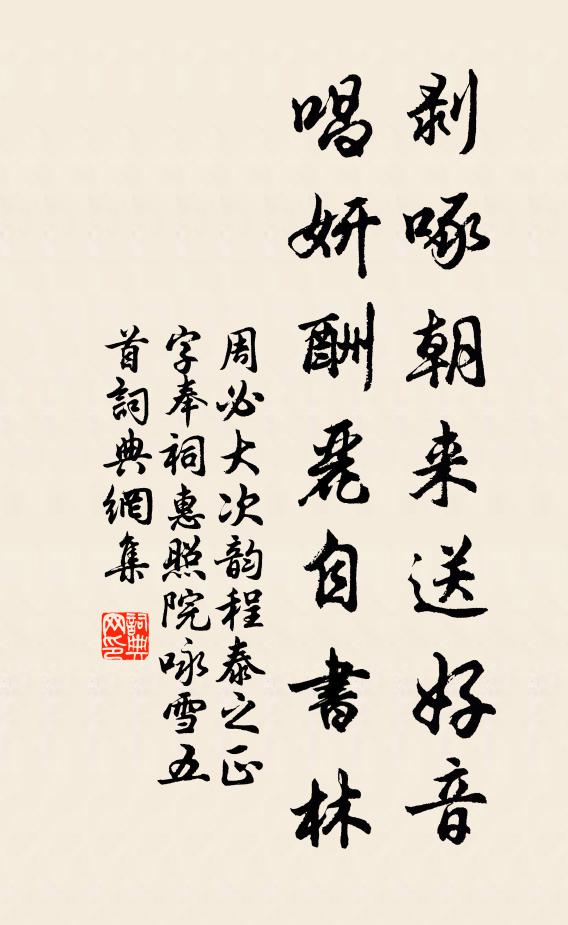 剥啄朝来送好音
唱妍酬麗自書林
周必大次韵程泰之正
字奉祠惠照院咏雪五
首詞典網集
詞典
网印